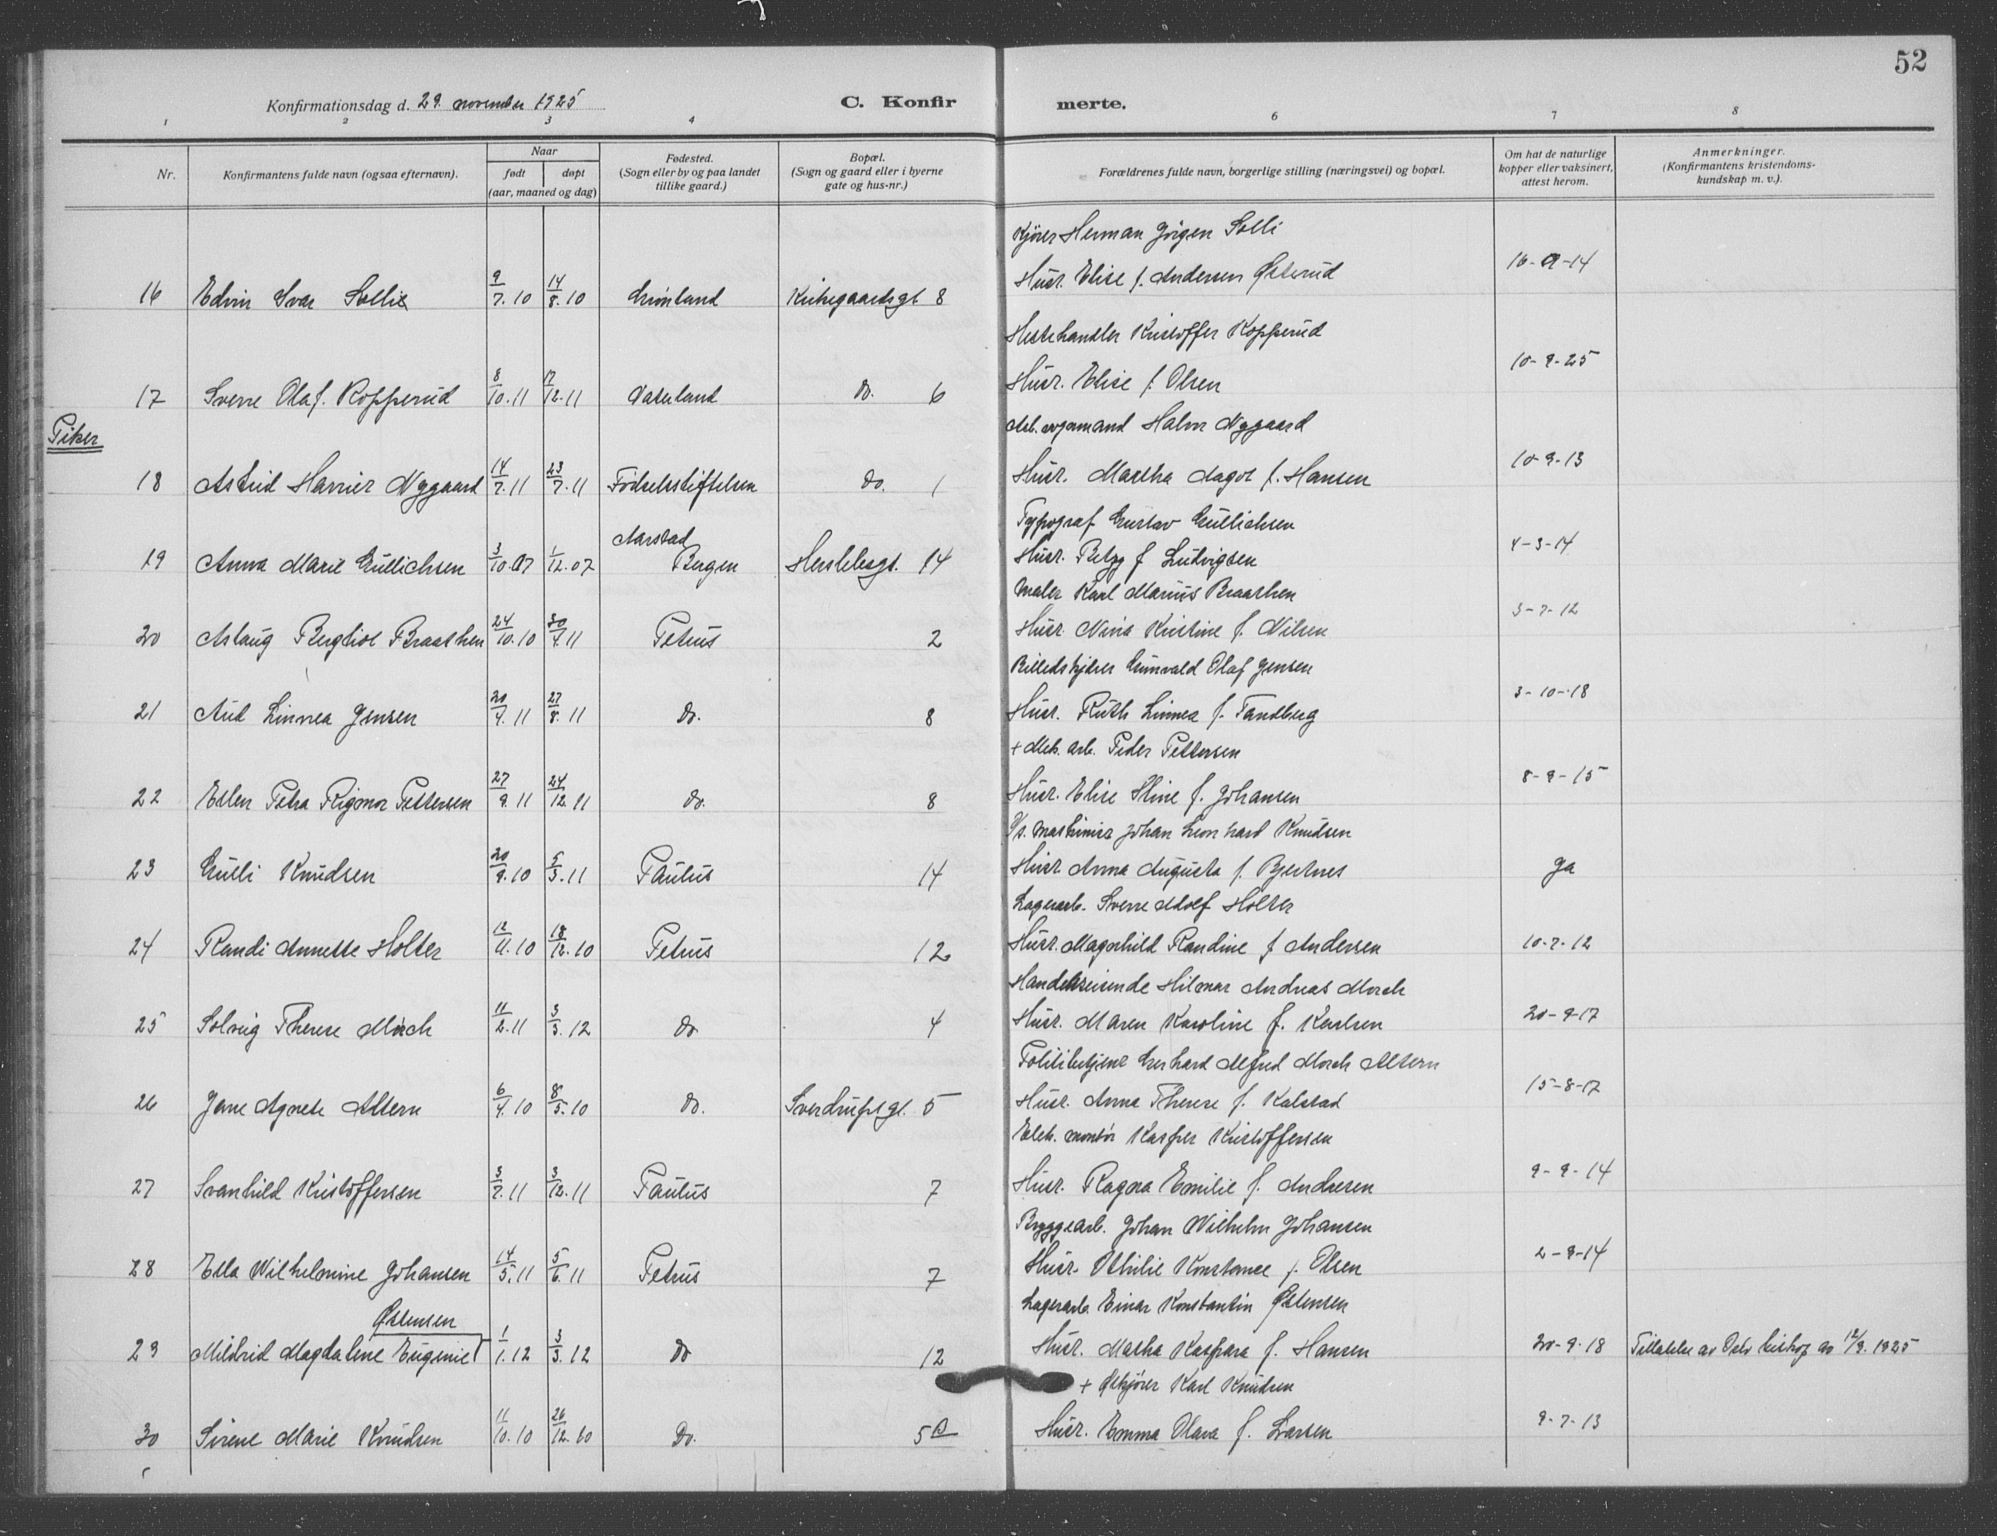 52
Konfirmationsdag d. 29. november 1925
C. Konfir merte.
1 2 3 4 6 7 8
Nr.
Konfirmantens fulde navn (ogsaa efternavn).
Naar
født døpt
(aar, maaned og dag)
Fødested.
(Sogn eller by og paa landet
tillike gaard.)
Bopæl.
(Sogn og gaard eller i byerne
gate og hus-nr.)
Forældrenes fulde navn, borgerlige stilling (næringsvei) og bopæl.
Om hat de naturlige
kopper eller vaksinert,
attest herom.
Anmerkninger.
(Konfirmantens kristendoms-
kundskap m. v.).
Kjører Herman Jørgen Solli
16 Edvin Ivar Sollie 9/7.10 14/8.10 Grønland Kirkegaardsgt 8 Husr. Elise f. Andersen Østerud 16-9-14
Hestehandler Kristoffer Kopperud
17 Sverre Olaf Kopperud 8/10.11 17/12.11 Vaterland do. 6 Husr. Elise f. Olsen 10-9-25
Piker
Halvor Nygaard
18 Astrid Nygaard 14/7.11 23/7.11 Fødselsstiftelsen do. 1 Husr. Martha Dagot f. Hansen 10-9-13
Typograf Gustav Gullichsen
Aarstad
19 Anna Marie Gullichsen 3/10.07 1/12.07 Bergen Herslebsgt. 14 Husr. Betzy f Ludvigsen 4-3-14
Maler Karl Marius Braathen
20 Aslaug Bergliot Braathen 24/10.10 30/4.11 Petrus 2 Husr. Nina Kristine f. Nilsen 3-7-12
Billedskjærer Gunvald Olaf Jensen
21 Aud Linnea Jensen 20/4.11 27/8.11 do. 8 Husr. Ruth Linnea f. Tandberg 3-10-18
+ Mek. arb. Peder Pettersen
22 Ellen Petra Rigmor Pettersen 27/9.11 24/12.11 do. 8 Husr. Elise Stine f. Johansen 8-9-15
Maskinist Johan Leonhard Knudsen
23 Gulli Knudsen 20/9.10 5/3.11 Paulus 14 Husr. Anna Augusta f. Bjertnes Ja
Lagerarb. Sverre Adolf Holter
24 Randi Annette Holter 12/11.10 18/12.10 Petrus 12 Husr. Magnhild Randine f Andersen 10-7-12
Handelsreisende Hilmar Andreas Morch
25 Solveig Therese Morch 11/2.11 3/3.12 do 4 Husr. Maren Karoline f. Karlsen 20-9-17
Politibetjent Gerhard Alfred Morch Altern
26 Jane Agnete Altern 6/4.10 8/5.10 do. Sverdrupsgt. 5 Husr. Anna Therese f. Kalstad 15-8-17
Elek. montør Kasper Kristoffersen
27 Svanhild Kristoffersen 3/7.11 3/12.11 Paulus 7 Husr. Ragna Emilie f. Andresen 9-9-14
Bryggearb. Johan Wilhelm Johansen
28 Ella Wilhelmine Johansen 14/5.11 5/6.11 Petrus 7 Husr. Othilie Konstance f. Olsen 2-9-14
Østensen Lagerarb. Einar Konstantin Østensen
29 Mildrid Magdalene Eugenie 1/1.12 3/3.12 do 12 Husr. Martha Kaspara f. Hansen 20-9-18 Tillatelse av Oslo biskop av 12/9.1925
+ Ølkjører Karl Knudsen
30 Sirene Marie Knudsen 11/10.10 26/12.10 do. 5 B Husr. Emma Olava f. Larsen 9-7-13